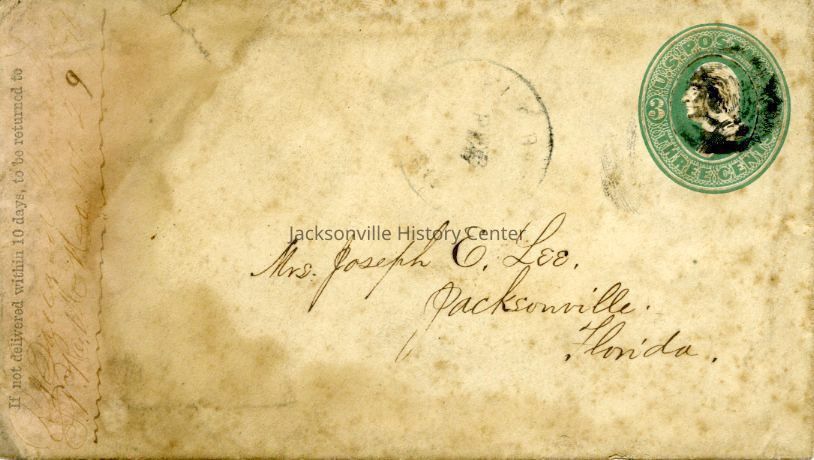 If not delivered within 10 days, to be returned to
U.S. POSTAGE
3
THREE CENTS
Jacksonville History Center
Mrs. Joseph E. Lee.
Jacksonville.
Florida.